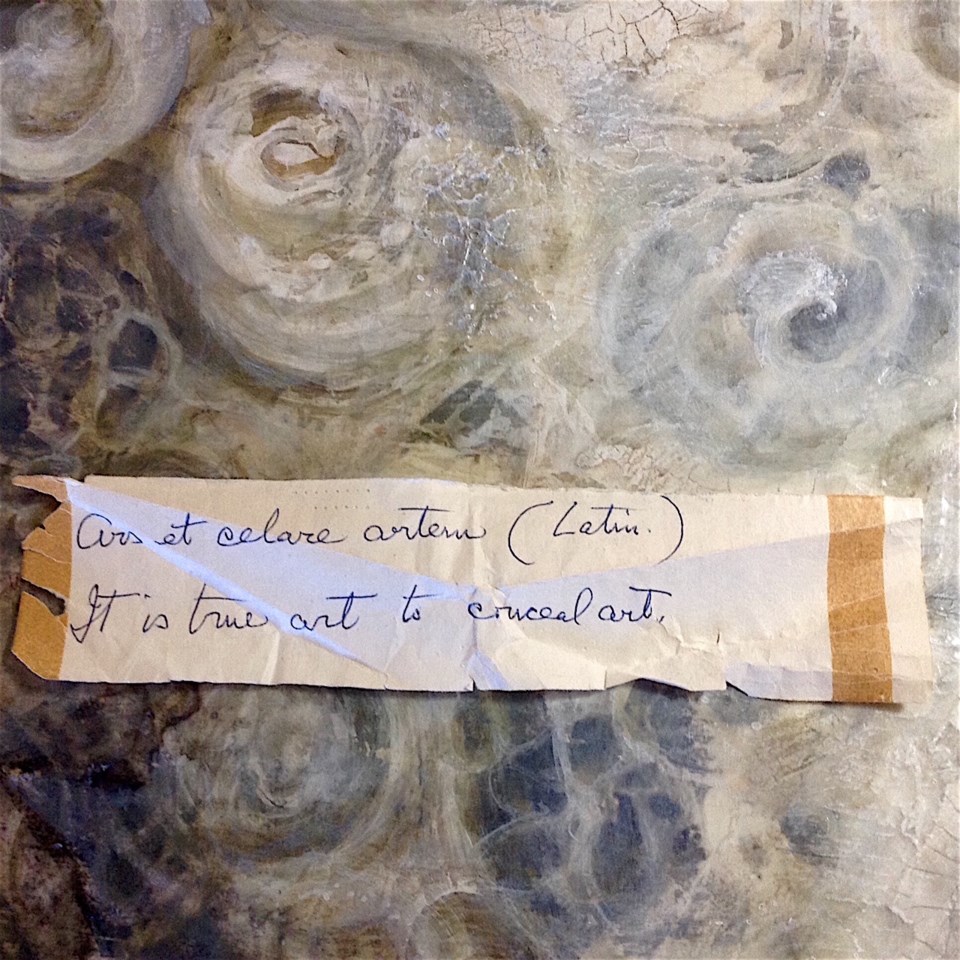 Ars et celare artem (Latin.)
It is true art to conceal art.